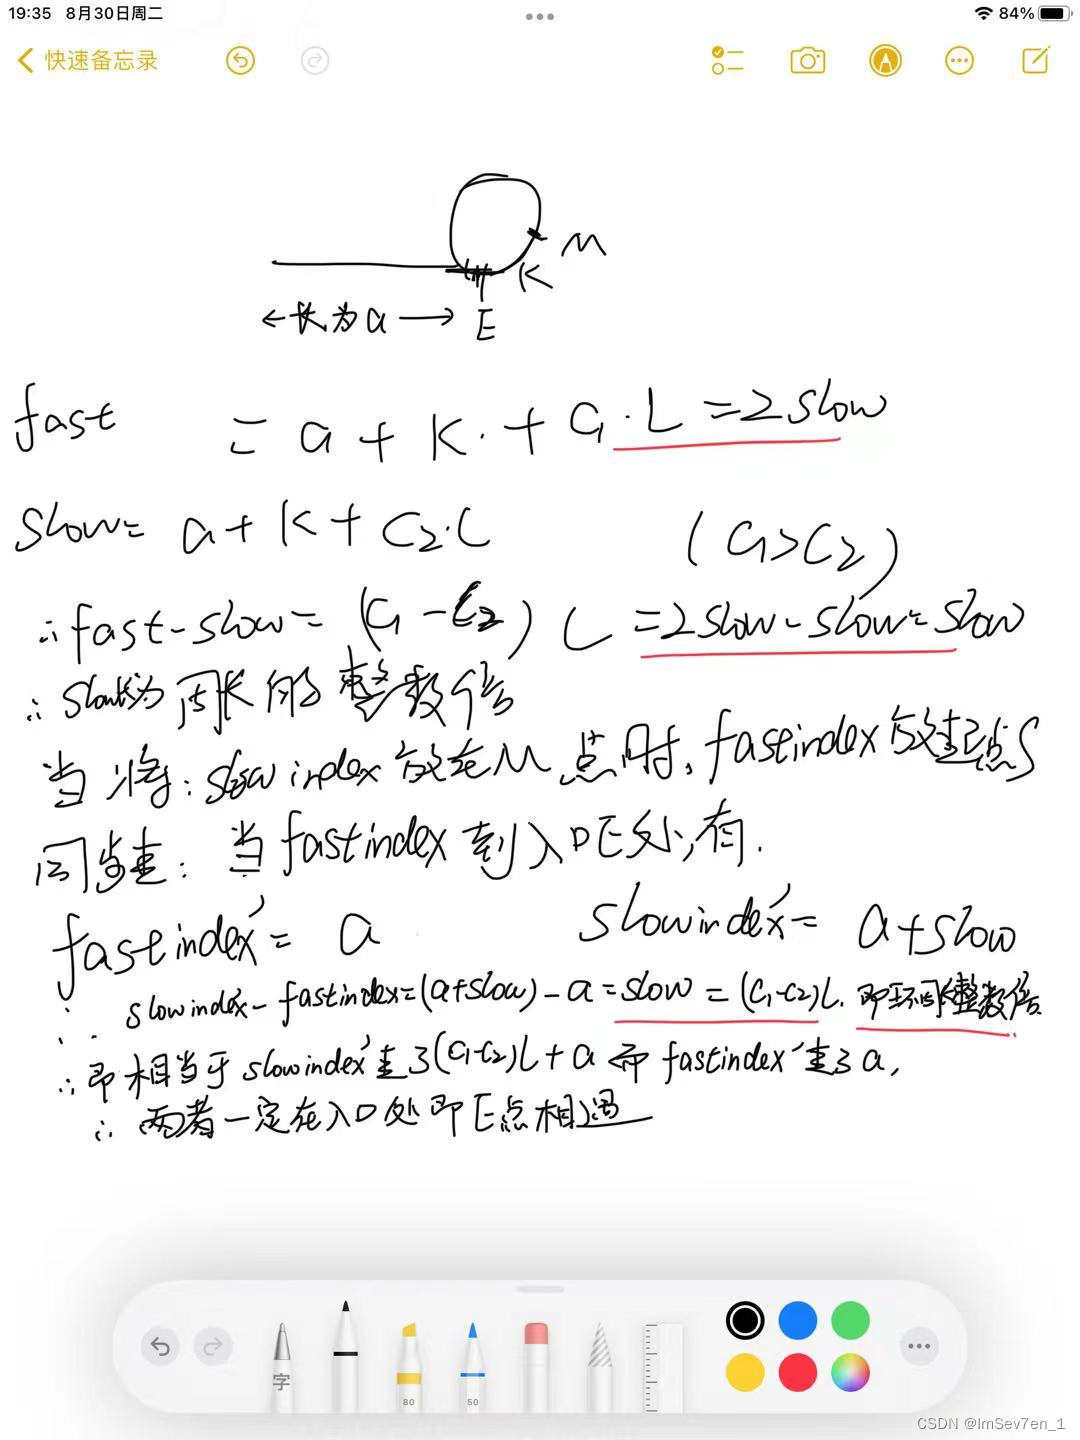 19:35 8月30日周二
84%
快速备忘录
M
K
←长为a→ E
fast = a + K + C1·L = 2slow
slow = a + K + C2·L (C1>C2)
∴fast-slow = (C1-C2) L = 2slow-slow=slow
∴slow长为周长的整数倍
当将:slowindex放在M点时,fastindex放起点S
同步走:当fastindex到入口E处,有.
fastindex'= a slowindex'= a+slow
∴ slowindex'-fastindex=(a+slow)-a=slow=(C1-C2)L.即环周长整数倍.
∴即相当于slowindex'走了(C1-C2)L+a 而fastindex'走了a,
∴两者一定在入口处即E点相遇
字
80
50
CSDN @ImSev7en_1